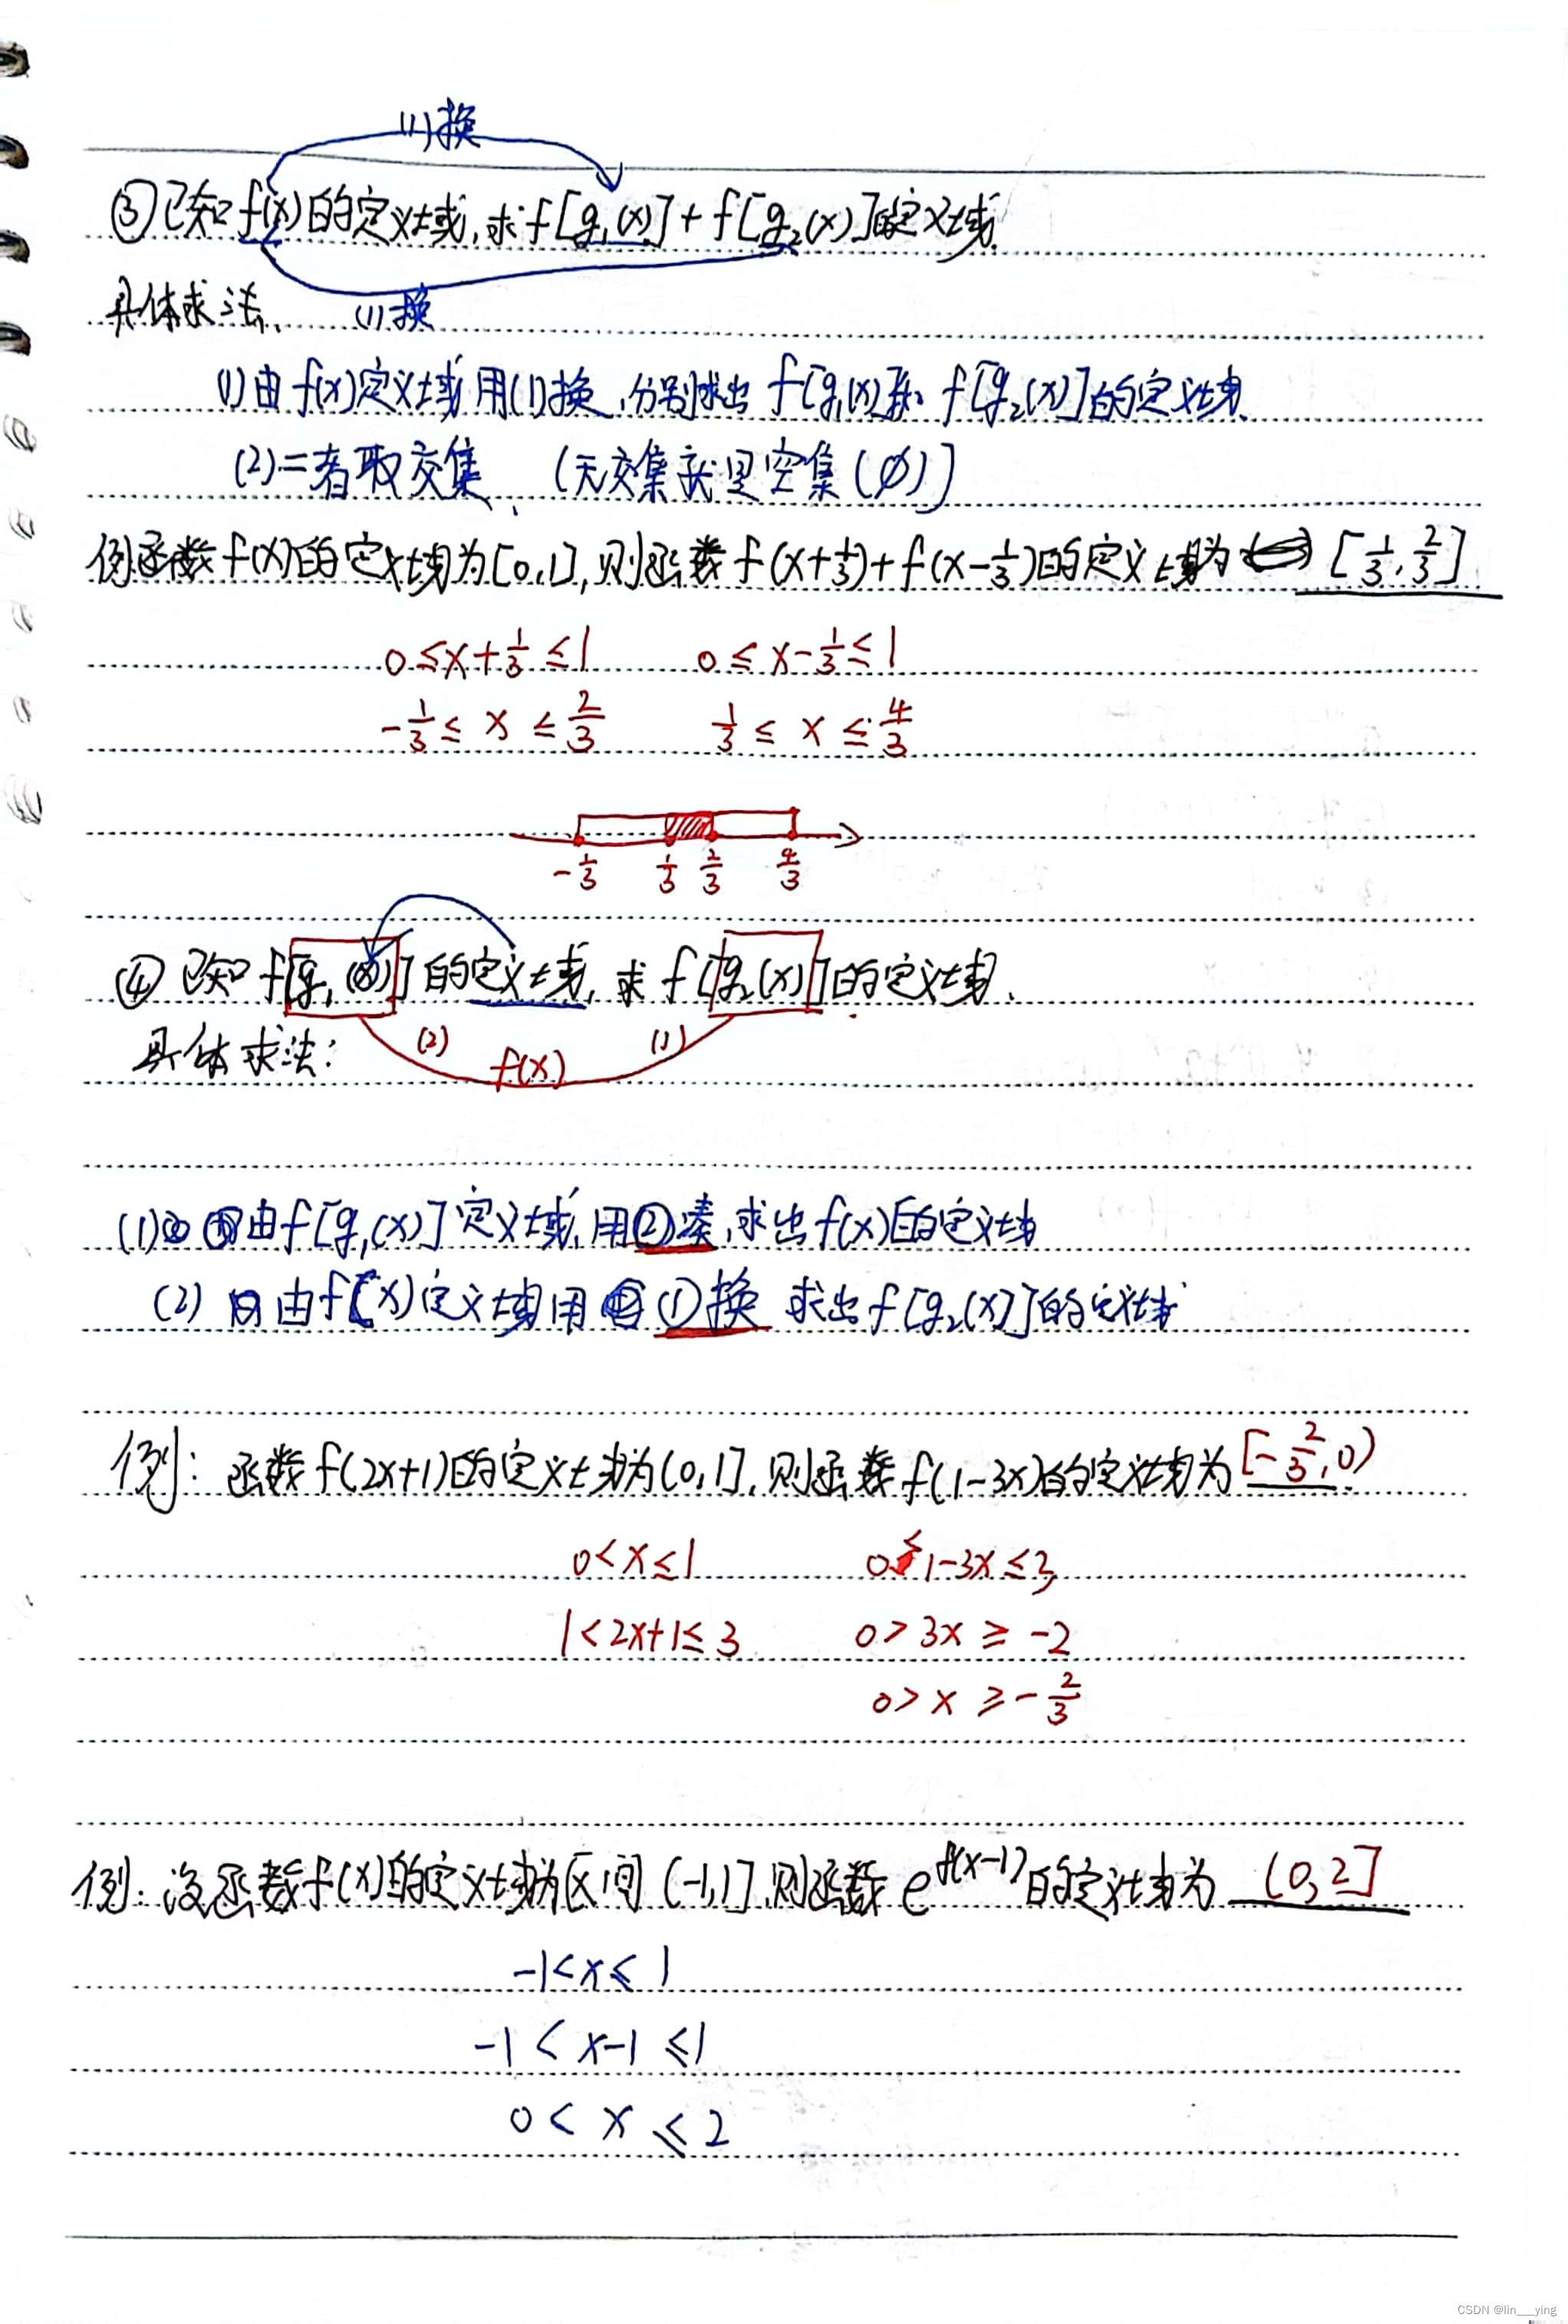 (1)换
③已知f(x)的定义域,求f[g₁(x)]+f[g₂(x)]的定义域.
具体求法、 (1)换
(1)由f(x)定义域用(1)换,分别求出f[g₁(x)]和f[g₂(x)]的定义域.
(2)二者取交集、(无交集就是空集(∅))
例函数f(x)的定义域为[0,1],则函数f(x+1/3)+f(x-1/3)的定义域为 [1/3,2/3]
0≤x+1/3≤1 0≤x-1/3≤1
-1/3≤x≤2/3 1/3≤x≤4/3
-1/3 1/3 2/3 4/3
④已知f[g₁(x)]的定义域,求f[g₂(x)]的定义域.
具体求法: (2) f(x) (1)
(1)由f[g₁(x)]定义域,用②凑,求出f(x)的定义域
(2)由f(x)定义域用①换 求出f[g₂(x)]的定义域
例:函数f(2x+1)的定义域为(0,1],则函数f(1-3x)的定义域为[-2/3,0).
0<x≤1 1-3x≤3
1<2x+1≤3 0>3x≥-2
0>x≥-2/3
例:设函数f(x)的定义域为区间(-1,1],则函数e^f(x-1)的定义域为 (0,2]
-1<x≤1
-1<x-1≤1
0<x≤2
CSDN @lin___ying